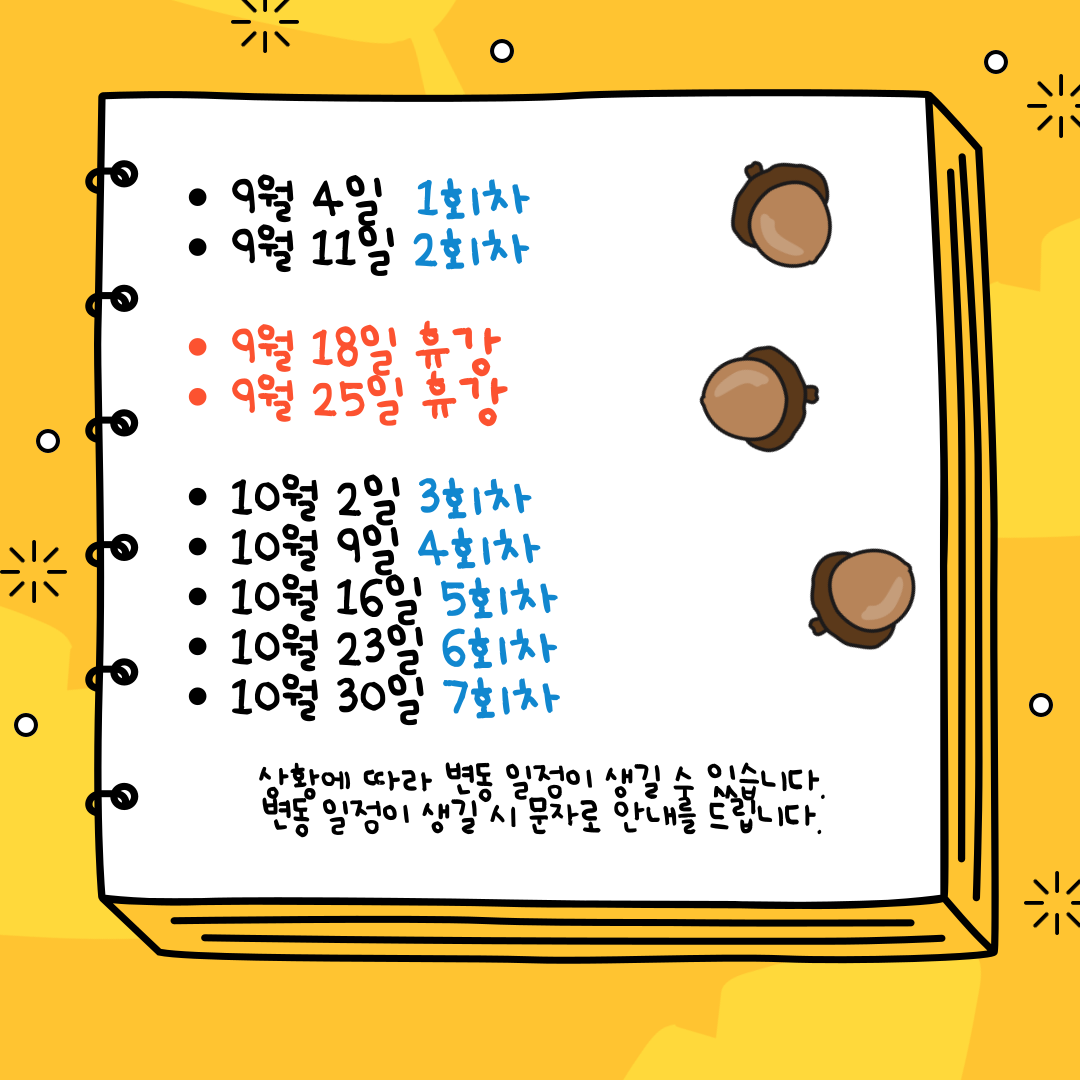 • 9월 4일 1회차
• 9월 11일 2회차
• 9월 18일 휴강
• 9월 25일 휴강
• 10월 2일 3회차
• 10월 9일 4회차
• 10월 16일 5회차
• 10월 23일 6회차
• 10월 30일 7회차
상황에 따라 변동 일점이 생길 수 있습니다.
변동 일점이 생길 시 문자로 안내를 드립니다.